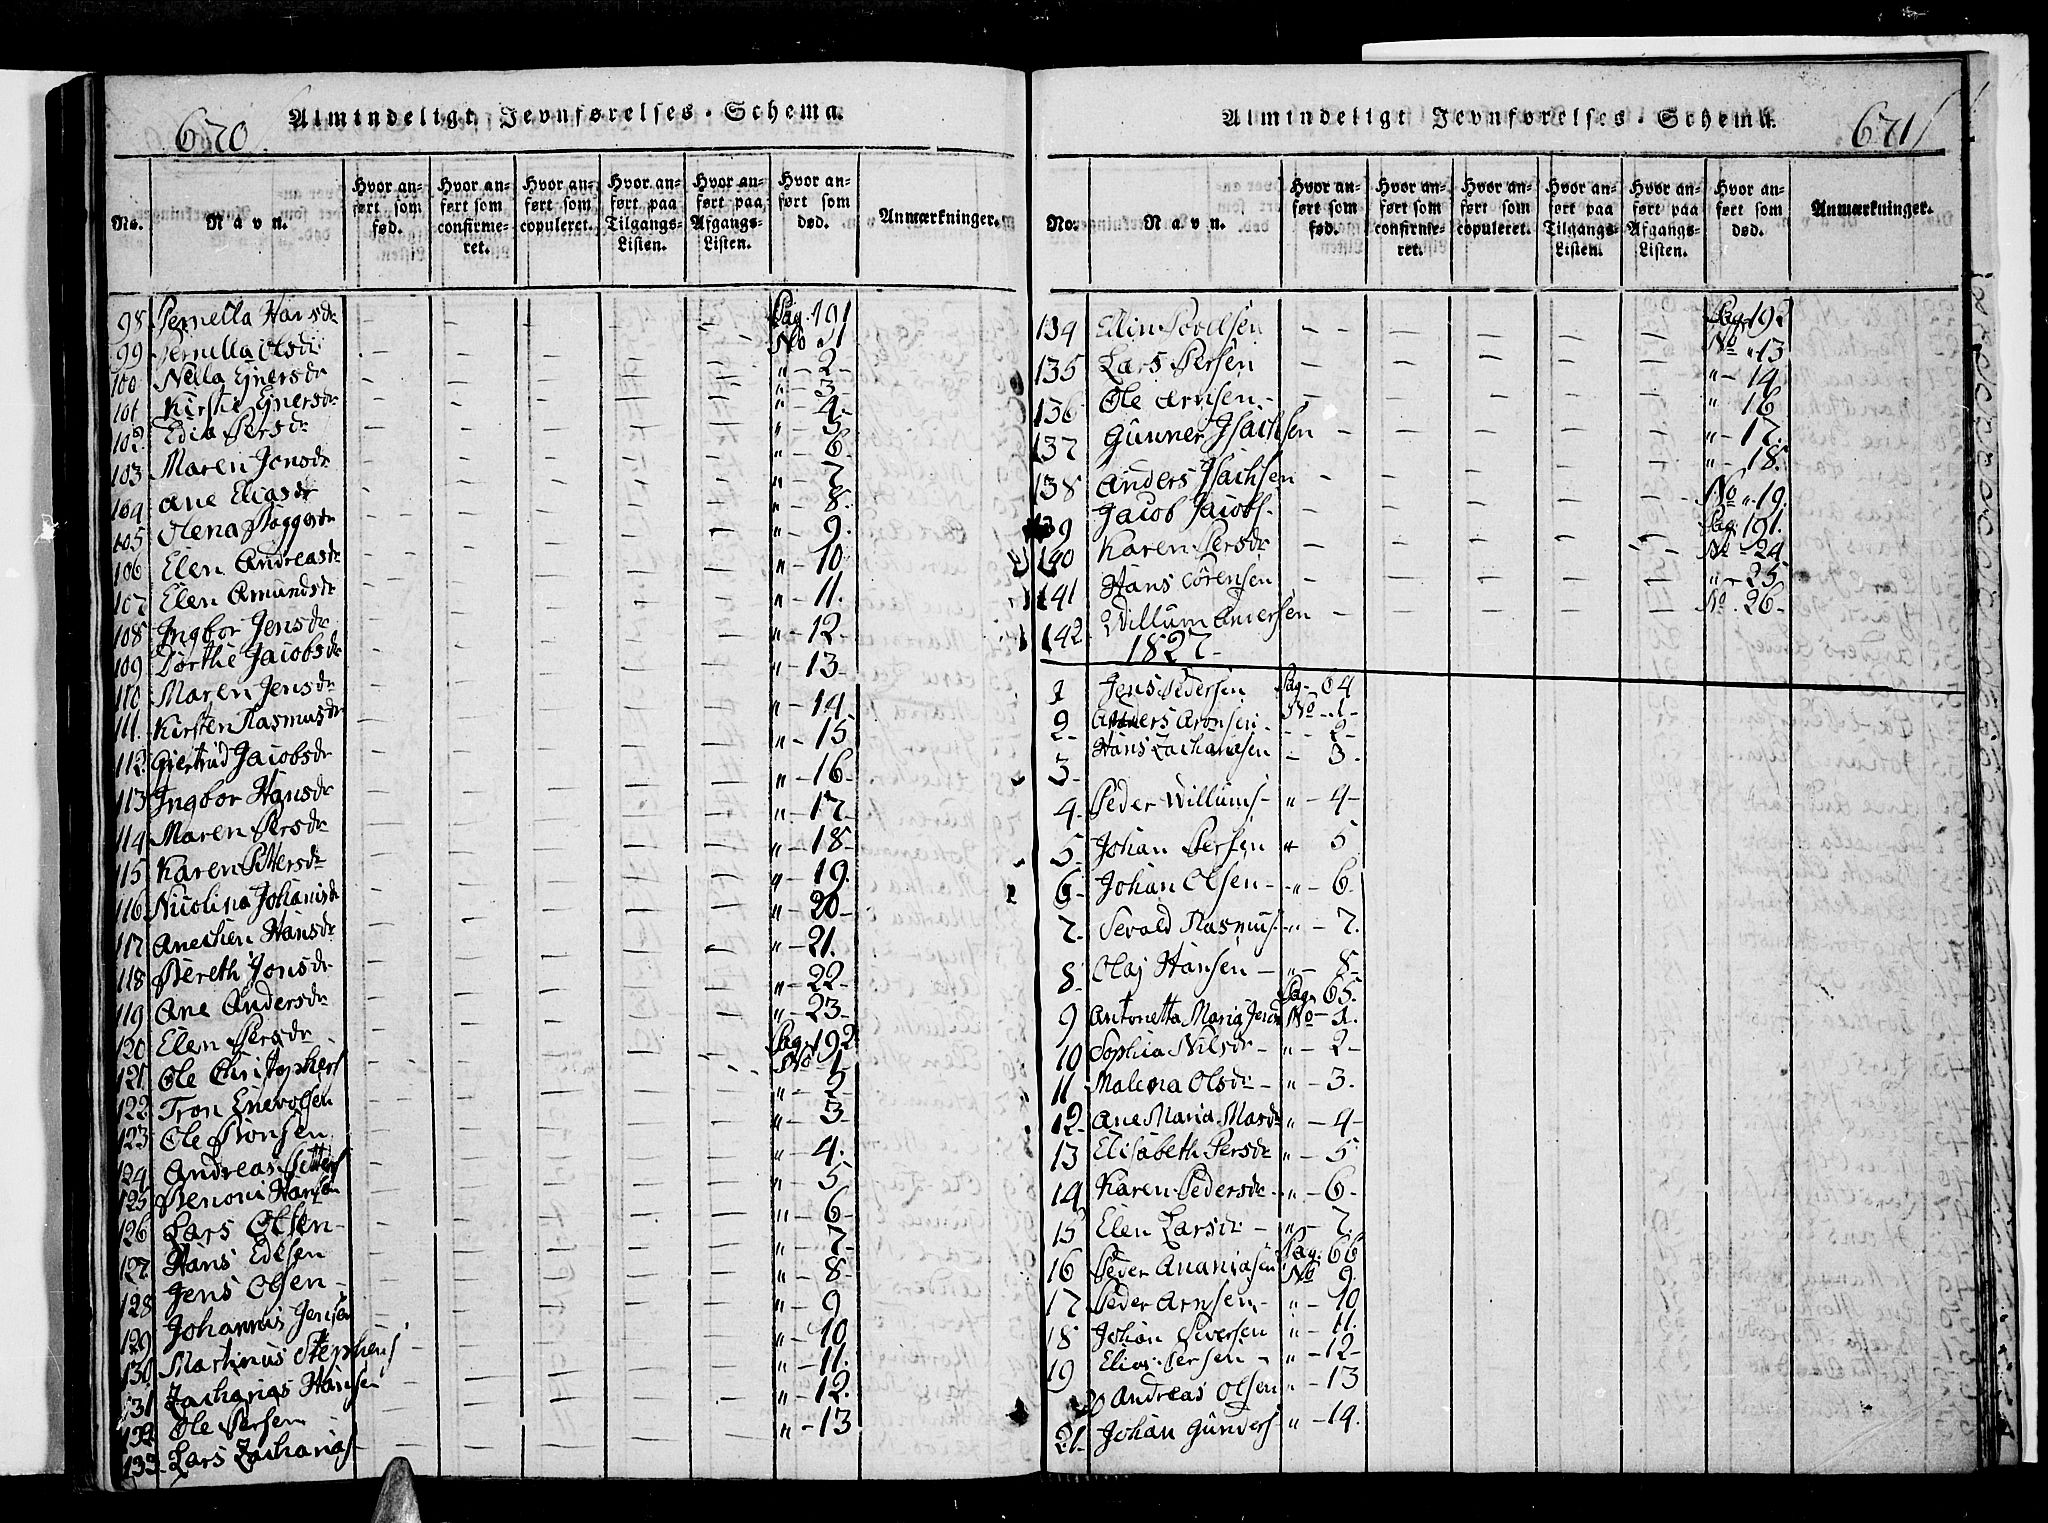 670.
Almindeligt Jevnførelses-Schema.
No.
Navn.
Hvor anført som fød.
Hvor anført som confirmeret.
Hvor anført som copuleret.
Hvor anført paa Tilgangs-Listen.
Hvor anført paa Afgangs-Listen.
Hvor anført som død.
Anmærkninger.
98 Pernella Hansdr Pag. 191
99 Pernella Olsdr No 1
100 Nella Ejnersdr " - 2 -
101 Kirstie Ejnersdr " - 3 -
102 Edia Persdr " - 4 -
103 Maren Jonsdr " - 5
104 Ane Eliasdr " - 6
105 Olena " - 7
106 Elen Andreasdr " - 8
107 Elen Amundsdr " - 9.
108 Ingbor Jensdr " - 10
109 Dorthe Jacobsdr " - 11.
110 Maren Jensdr " - 12
111. Kirsten Rasmusdr " - 13
112 Giertrud Jacobsdr " - 14
113 Ingbor Hansdr " - 15
114 Maren Persdr " - 16
115 Karen Pettersdr " - 17
116 Nicolina Johanisdr " - 18
117 Anechen Hansdr " - 19.
118 Bereth Jonsdr " - 20
119 Ane Andersdr " - 21.
120 Elen Persdr " - 22
" - 23
121. Ole Christophers Pag. 192
122 Tron Enevolsen No 1
123 Ole Bonsen " - 2
124 Andreas Petters " - 3
125 Benoni Hansen " - 4.
126 Lars Olsen - " - 5
127 Hans Edisen " - 6
128 Jens Olsen - " - 7
129 Johannis Jensen " - 8
130 Martinus Stephens " - 9
131 Zacharias Hansen " - 10
132 Ole Persen " - 11.
133 Lars Zacharias " - 12.
" - 13
Almindeligt Jevnførelses-Schema.
671
No.
Navn.
Hvor anført som fød.
Hvor anført som confirmeret.
Hvor anført som copuleret.
Hvor anført paa Tilgangs-Listen.
Hvor anført paa Afgangs-Listen.
Hvor anført som død.
Anmærkninger.
134 Elin Povelsen Pag. 192
No " 13
135 Lars Persen " - 14
136 Ole Arnsen - " 16
137 Gunner Isachsen " - 17.
138 Anders Isachsen " - 18.
139 Jacob Jacobs. No " 19.
Pag. 191.
140 Karen Persdr No 24
141 Hans Sørensen " - 25
142 Willum Andersen No. 26
1827 -
1 Jens Pedersen Pag - 64
2 Anders Aronsen - No - 1 -
3 Hans Zachariasen - 2 -
- 3.
4 Peder Willums - " - 4 -
5 Johan Persen " 5
6 Johan Olsen - " - 6.
7 Sevald Rasmus. " - 7.
8 Olaj Hansen - " - 8 -
Pag. 65.
9 Antonetta Maria Jens No - 1.
10 Sophia Nilsdr - " - 2 -
11 Malena Olsdr - " - 3.
12 Ane Maria Masdr " - 4 -
13 Elisabeth Persdr " - 5
14 Karen Pedersdr - " - 6 -
15 Elen Larsdr - " - 7.
Pag. 66
16 Peder Ananiasen No 9.
17 Peder Arnsen - " - 10
18 Johan Siversen " - 11.
19 Elias Persen - " - 12 -
20 Andreas Olsen " - 13
21 Johan Gunders " - 14.